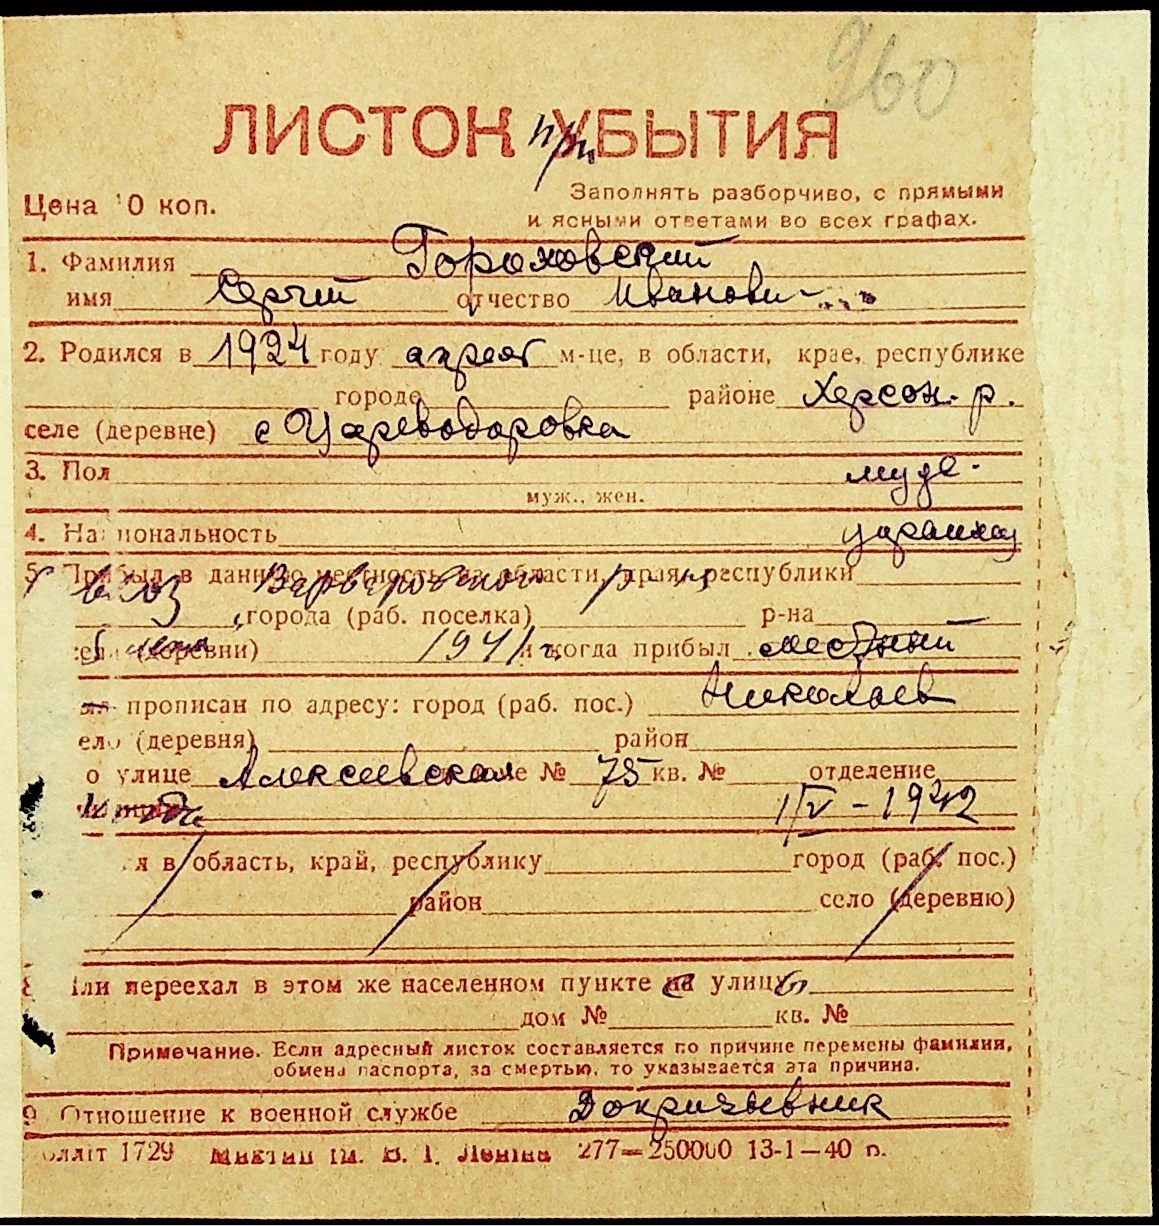 960
ЛИСТОК при УБЫТИЯ
Цена 10 коп.
Заполнять разборчиво, с прямыми
и ясными ответами во всех графах.
1. Фамилия Гороховский
имя Сергий отчество Иванови
2. Родился в 1924 году апреля м-це, в области, крае, республике
городе районе Херсон. р.
селе (деревне) с Цареводаровка
3. Пол муже.
муж., жен.
4. Национальность украинец
5. Прибыл в данную местность из области, края, республики
города (раб. поселка) р-на
(деревни) 1941 г. и когда прибыл местный
прописан по адресу: город (раб. пос.) Николаев
ело (деревня) район
о улице Алексеевская № 75 кв. № отделение
1/V - 1942
я в область, край, республику город (раб. пос.)
район село (деревню)
Или переехал в этом же населенном пункте на улицу
дом № кв. №
Примечание. Если адресный листок составляется по причине перемены фамилии,
обмена паспорта, за смертью, то указывается эта причина.
9. Отношение к военной службе Допризывник
1729 277—250000 13-1—40 р.